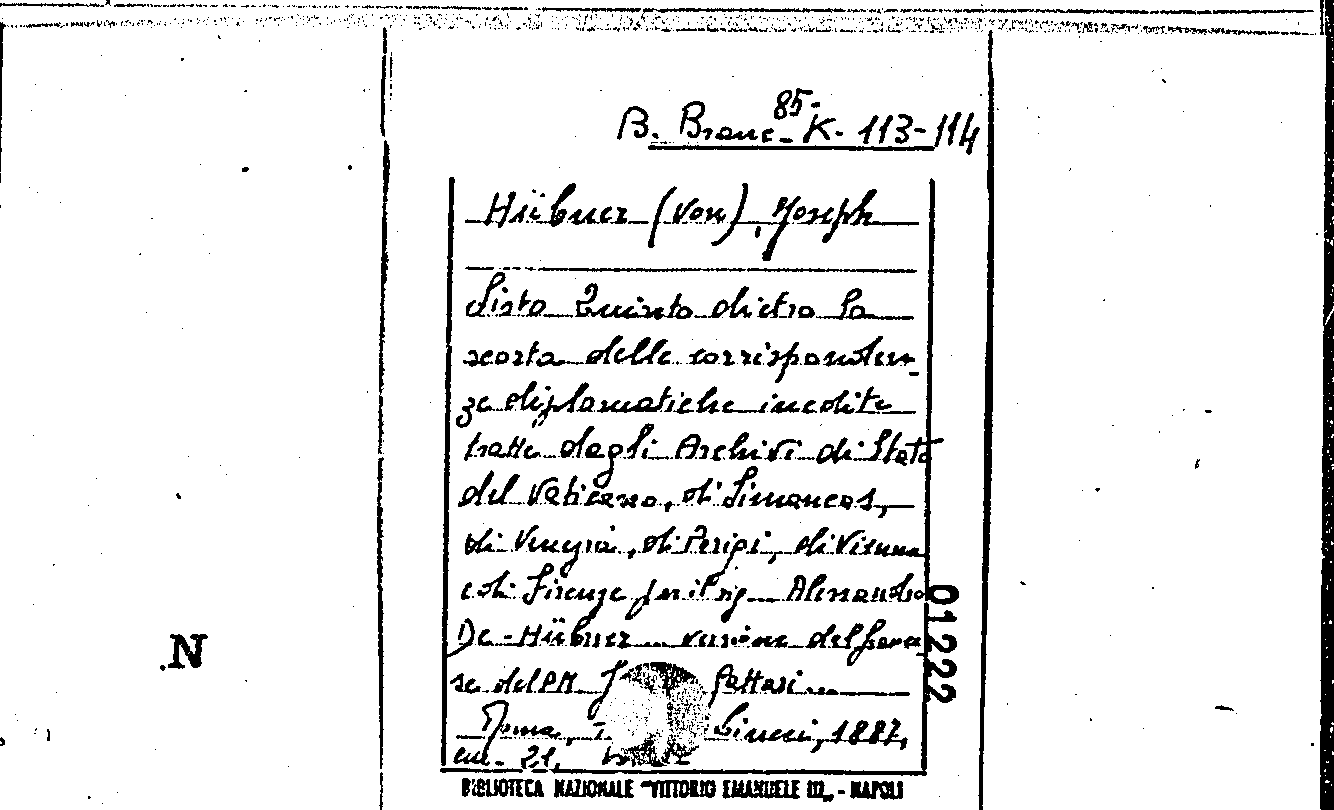 B. Branc. 85- K- 113-114
Hübner (von), Joseph
Sisto Quinto dietro la
scorta delle corrisponden-
ze diplomatiche inedite
tratte dagli Archivi di Stato
del Vaticano, di Simancas,
di Venezia, di Parigi, di Vienna
e di Firenze per il sig. Alessandro
De-Hübner... versione dal france
se del P.M. fattasi...
Roma, 1887,
cm. 21.
01222
N.
BIBLIOTECA NAZIONALE "VITTORIO EMANUELE III" - NAPOLI